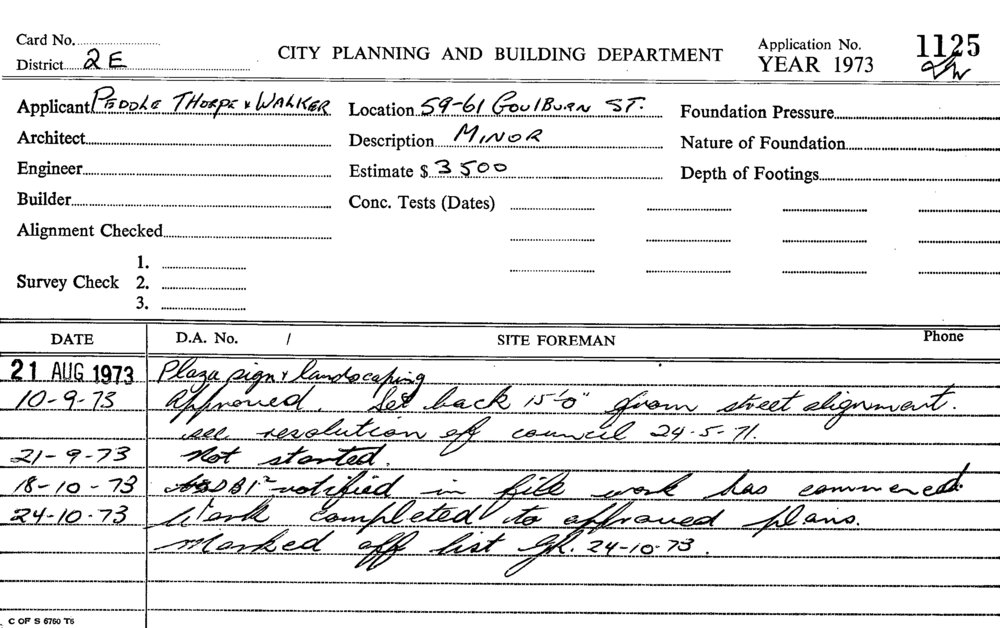 Card No.
District 2E
CITY PLANNING AND BUILDING DEPARTMENT
Application No. 1125
YEAR 1973
Applicant PEDDLE THORPE & WALKER
Location 59-61 GOULBURN ST.
Foundation Pressure
Architect
Description MINOR
Nature of Foundation
Engineer
Estimate $ 3500
Depth of Footings
Builder
Conc. Tests (Dates)
Alignment Checked
Survey Check
1.
2.
3.
DATE D.A. No. / SITE FOREMAN Phone
21 AUG 1973 Plaza sign & landscaping
10-9-73 Approved. Set back 15'-0" from street alignment.
see resolution of council 24-5-71.
21-9-73 Not started.
18-10-73 notified in file work has commenced.
24-10-73 Work completed to approved plans.
Marked off list 24-10-73.
C OF S 6760 T5